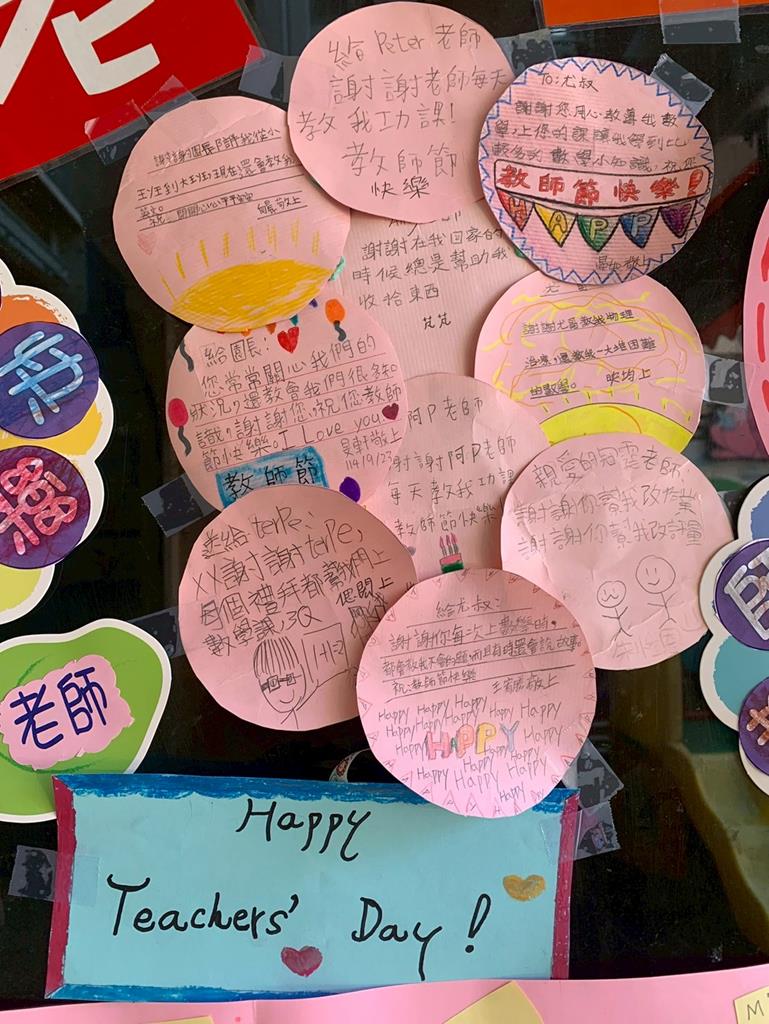 給 Peter 老師
謝謝老師每天
教我功課!
教師節
快樂
To:尤叔
謝謝您用心教導我數
學,上您的課讓我學到比
較多的數學小知識,祝您
教師節快樂!
HAPPY
敬上
謝謝園長
謝謝在我回家的
時候總是幫助我
收拾東西
芃芃
謝謝尤哥教我物理
還教我一大堆困難
的數學。
映均上
給園長:
您常常關心我們的
狀況,還教會我們很多知
識,謝謝您,祝您教師
節快樂。I Love you.
敬上
114/9/23
教師節
阿P老師
謝謝阿P老師
每天教我功課
教師節快樂
親愛的
老師
謝謝你幫我改作業
謝謝你幫我改評量
送給 terpe、
XX謝謝terpe,
每個禮拜都幫我們上
數學課,3Q
1+1=2
給尤叔:
謝謝你每次上數學時,
都會教我不會的題,而且有時還會說故事。
祝:教師節快樂
敬上
Happy Happy Happy Happy
Happy Happy Happy
HAPPY
Happy Happy Happy
老師
Happy
Teachers' Day!